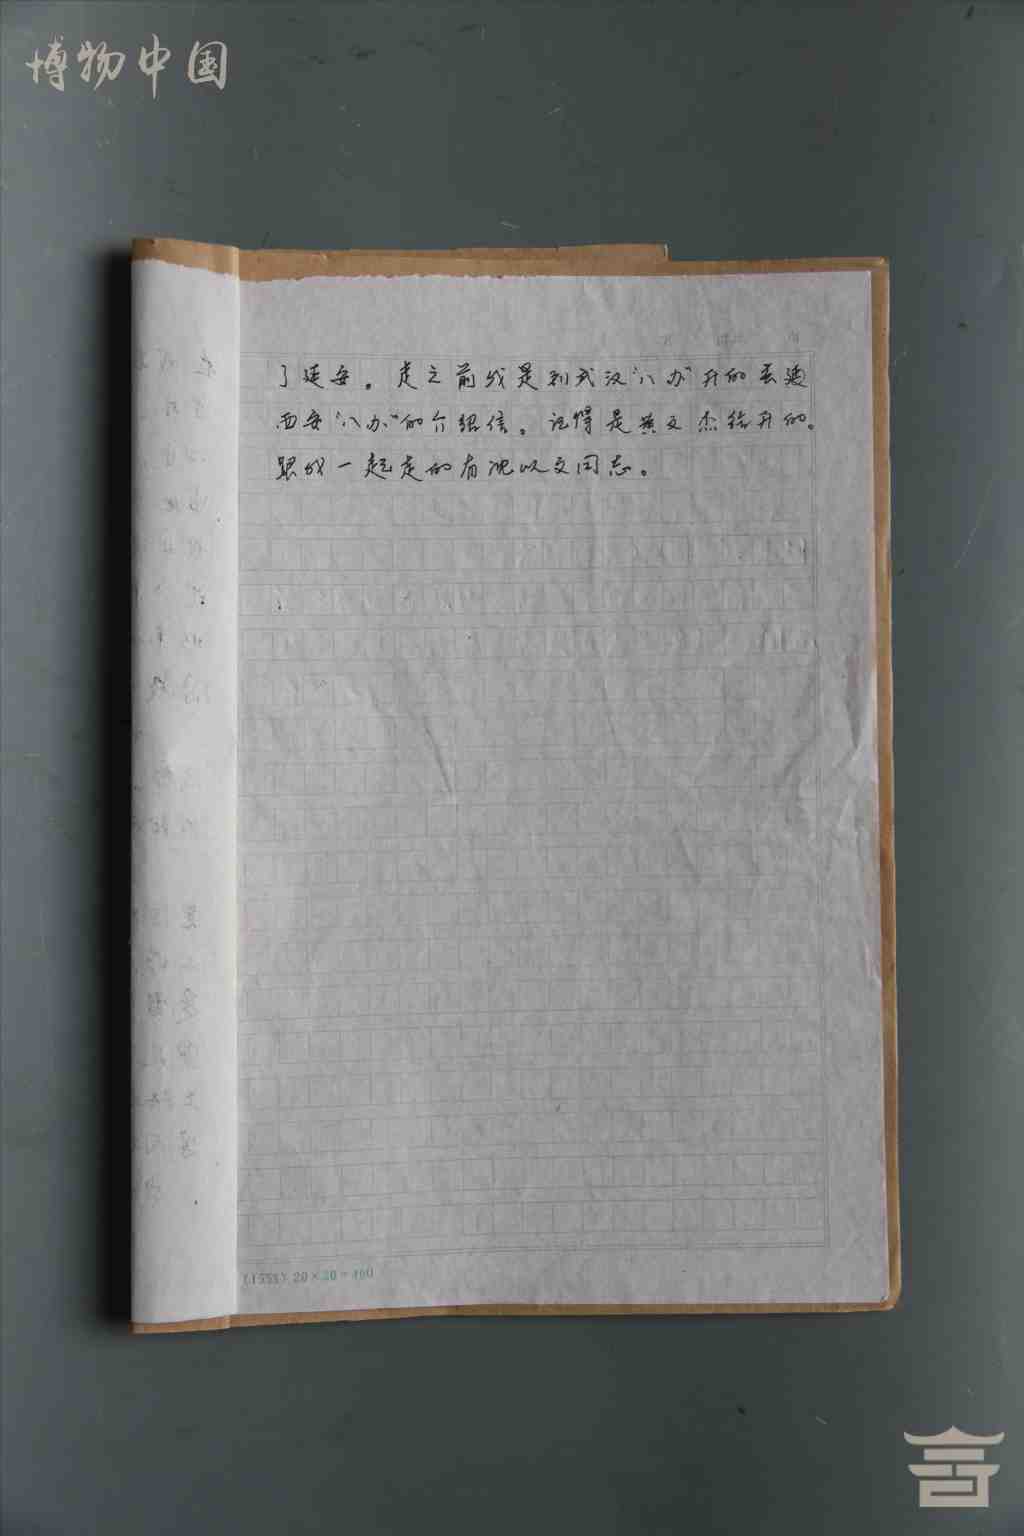 博物中国
了延安。走之前我是到武汉"八办"开的去
西安"八办"的介绍信。记得是黄文杰给开的。
跟我一起走的有沈以文同志。
20×20=400